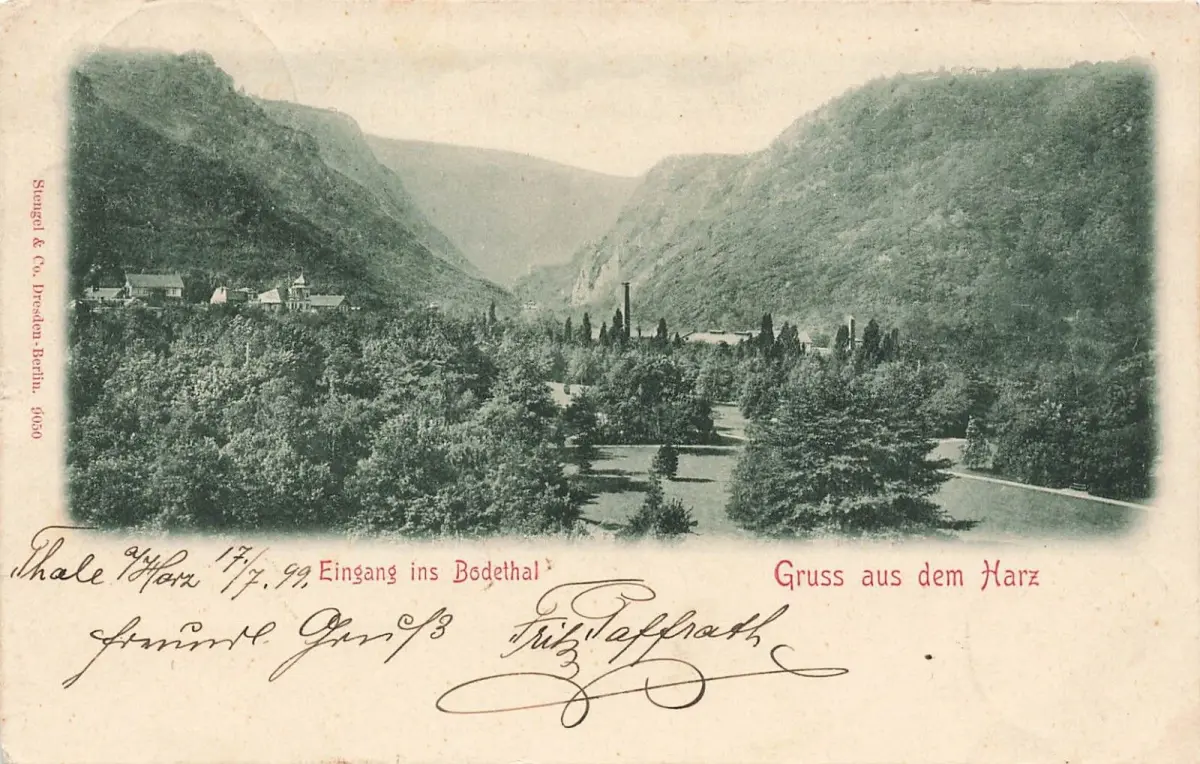 Stengel & Co. Dresden-Berlin. 9050
Thale a/Harz 17/7.99.
Eingang ins Bodethal
Gruss aus dem Harz
freundl. Gruß
Fritz Paffrath